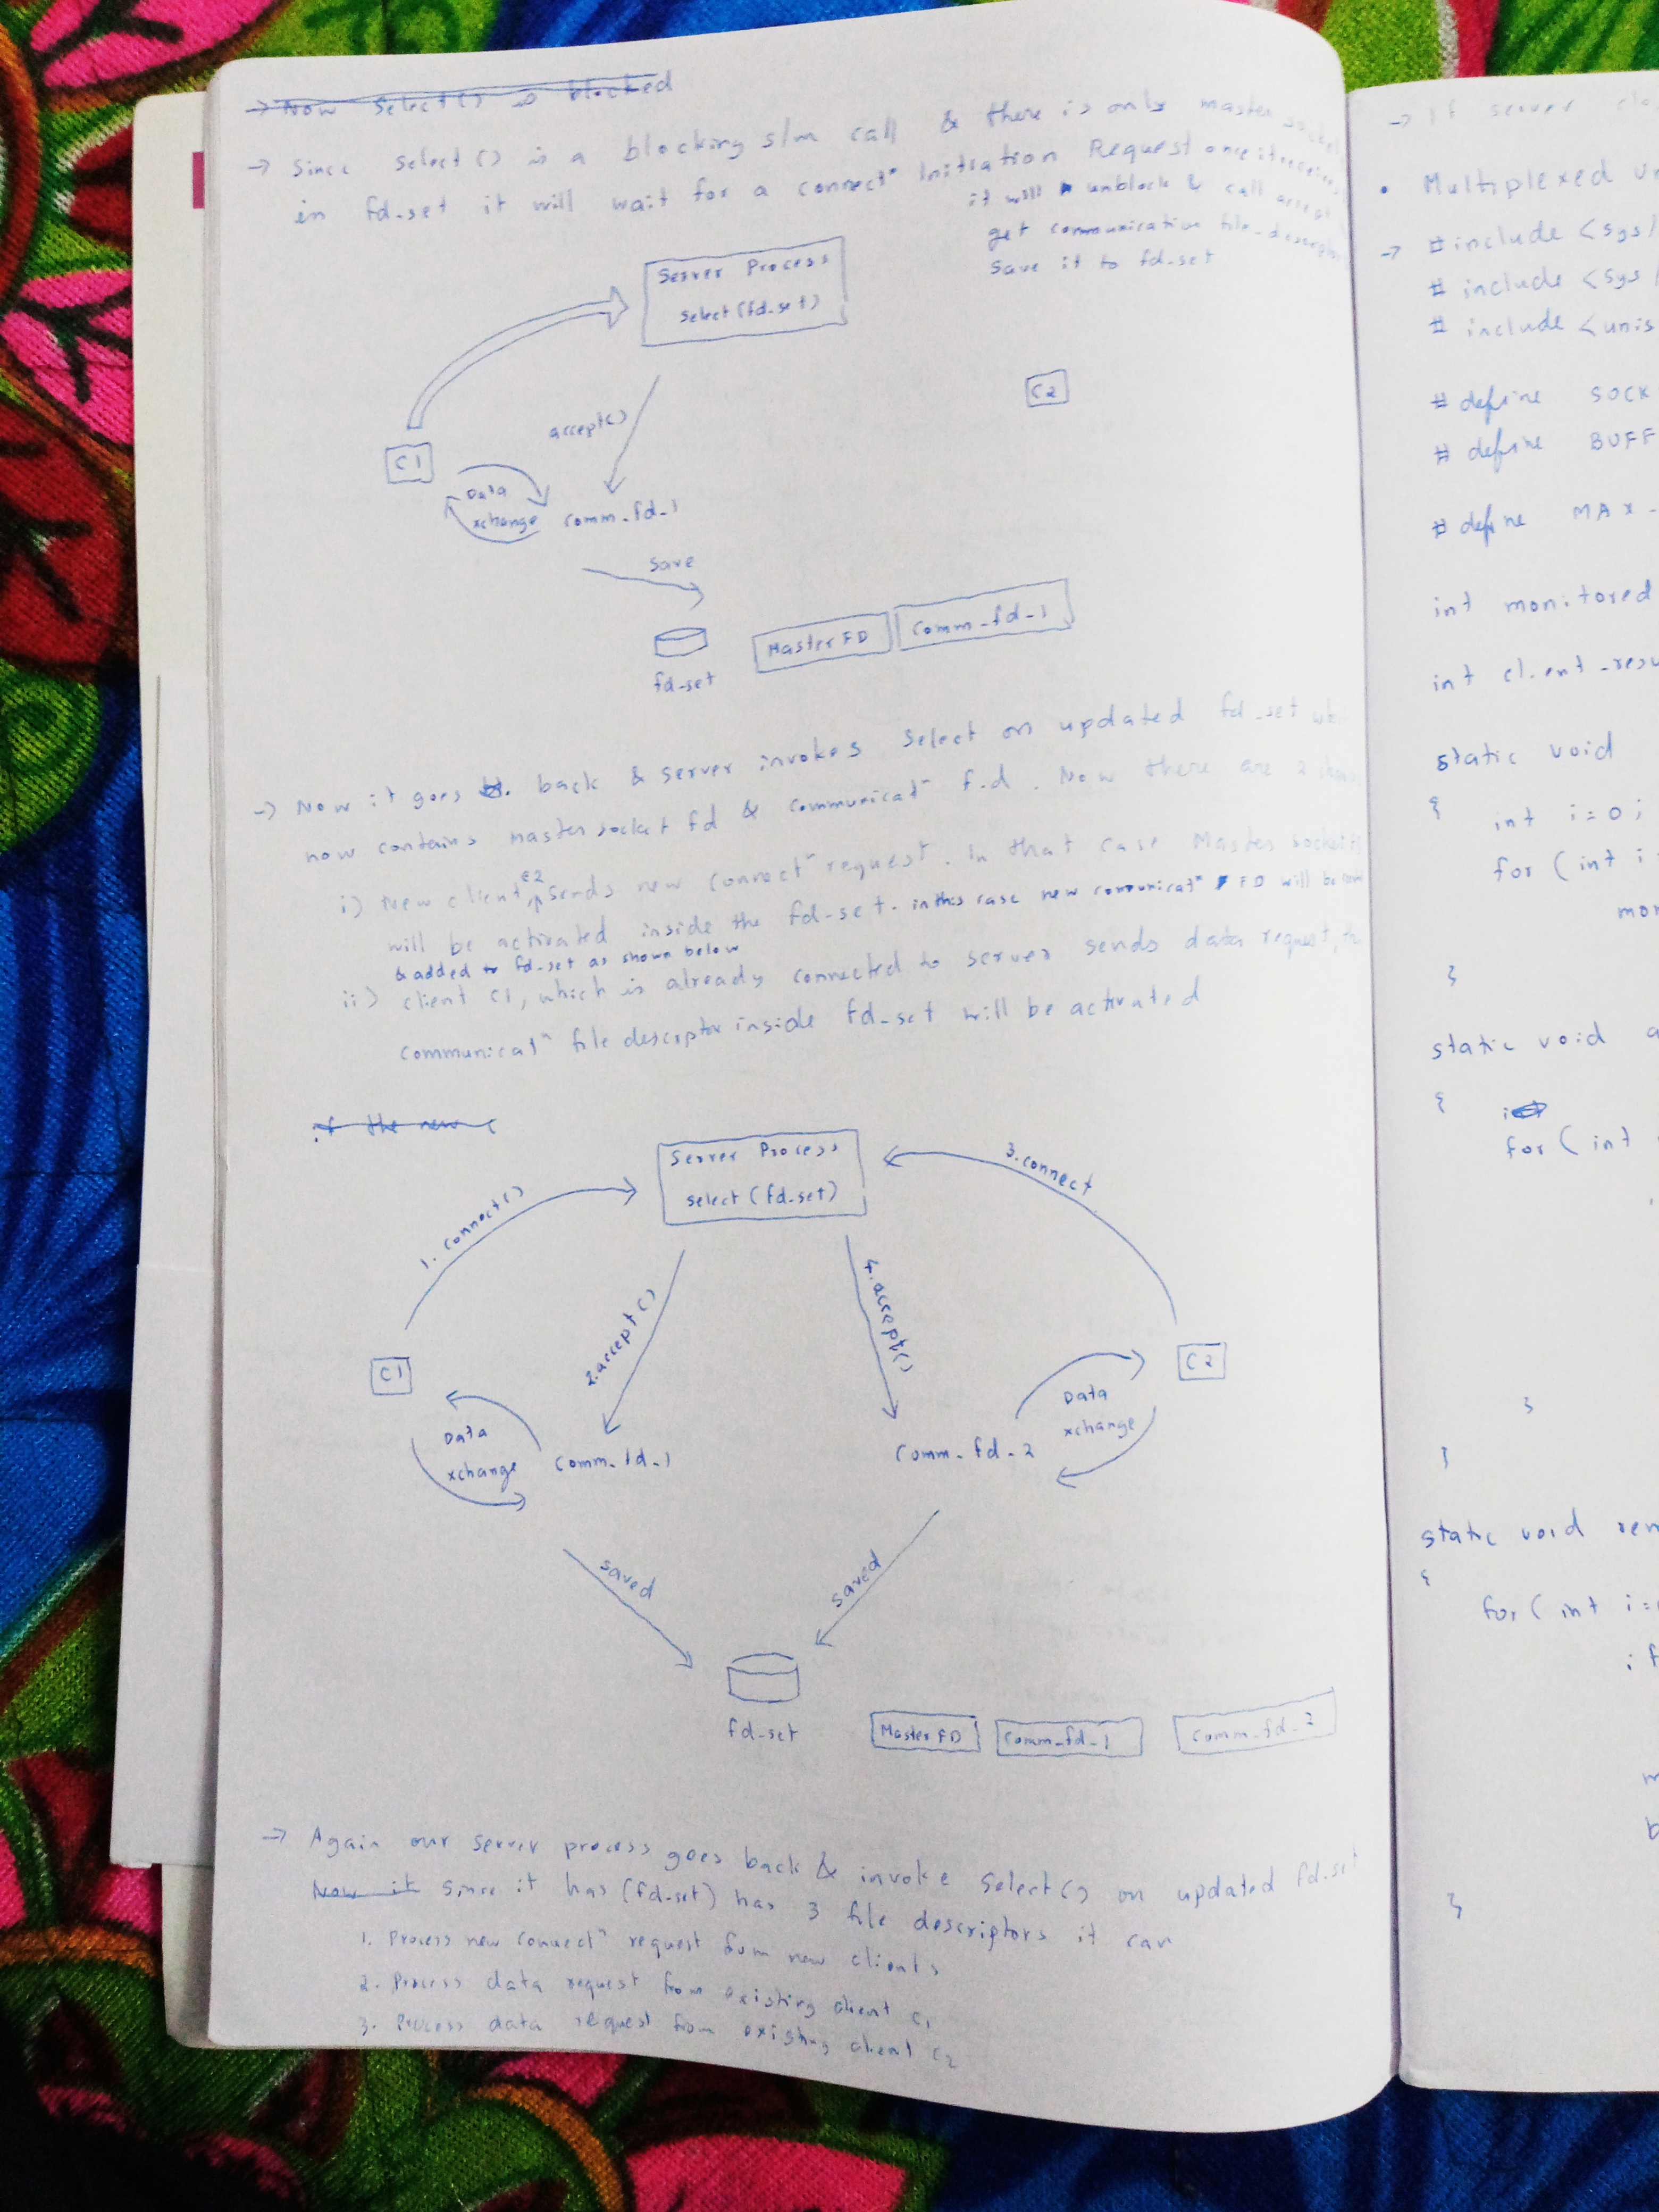 → Now select() is blocked
→ Since select() is a blocking s/m call & there is only master socket
in fd-set it will wait for a connectⁿ Initiation Request once it receives
it will unblock & call accept
get communication file-descriptor
save it to fd-set
Server Process
select(fd-set)
C2
accept()
C1
Data
xchange
comm-fd-1
save
Master FD
Comm-fd-1
fd-set
→ Now it goes back & server invokes select on updated fd-set
now contains master socket fd & communicatⁿ f.d. Now there are 2
i) New client C2 sends new connectⁿ request. In that case Master socket
will be activated inside the fd-set. in this case new communicatⁿ FD will be
& added to fd-set as shown below
ii) client C1, which is already connected to server sends data request,
communicatⁿ file descriptor inside fd-set will be activated
if the new c
Server Process
select(fd-set)
1. connect()
3. connect
2. accept()
4. accept()
C1
C2
Data
xchange
Comm-fd-1
Comm-fd-2
Data
xchange
saved
saved
fd-set
Master FD
Comm-fd-1
Comm-fd-2
→ Again our server process goes back & invoke select() on updated fd-set
Now it since it has (fd-set) has 3 file descriptors it can
1. Process new connectⁿ request from new clients
2. Process data request from existing client C1
3. Process data request from existing client C2
→ If server
• Multiplexed
→ #include <sys/
# include <sys/
# include <unis
# define SOCK
# define BUFF
# define MAX-
int monitored
int client-resu
static void
{
int i=0;
for (int i
mon
}
static void a
{
for (int
}
}
static void rem
{
for( int i=
if
}